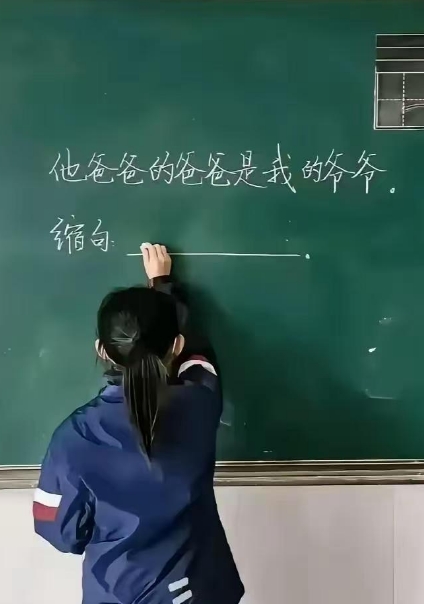 他爸爸的爸爸是我的爷爷。
缩句: